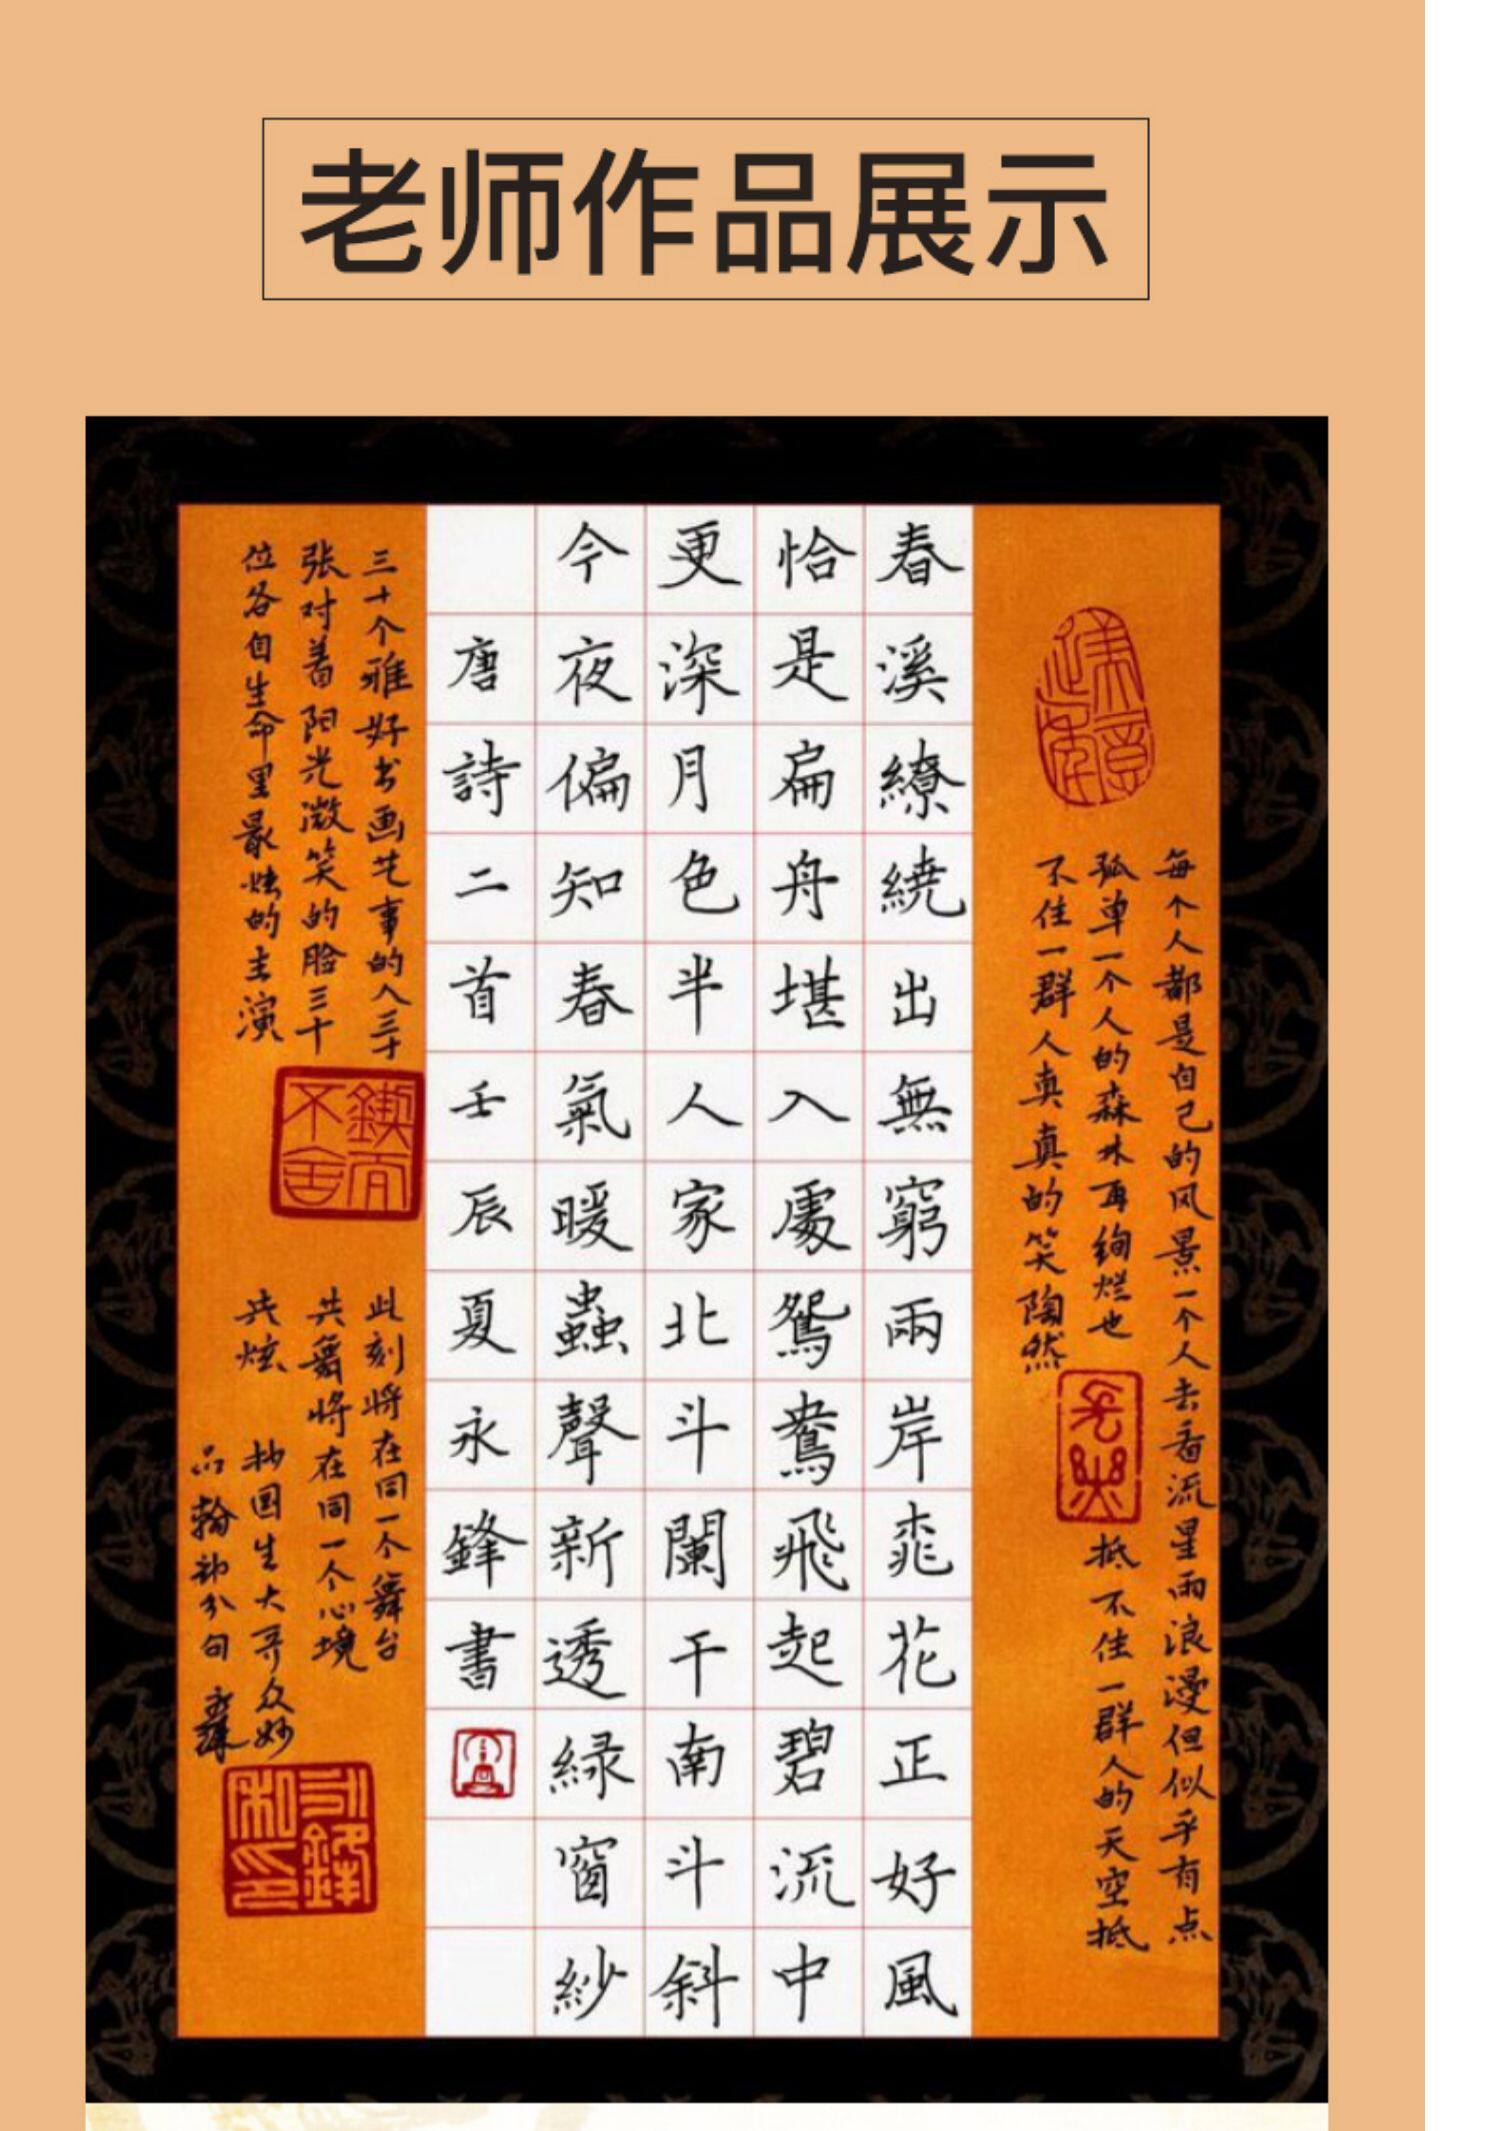 老师作品展示
每个人都是自己的风景一个人去看流星雨浪漫但似乎有点
孤单一个人的森林再绚烂也抵不住一群人的天空抵
不住一群人真真的笑陶然
春溪繚繞出無窮兩岸桃花正好風
恰是扁舟堪入處鴛鴦飛起碧流中
更深月色半人家北斗闌干南斗斜
今夜偏知春氣暖蟲聲新透緑窗紗
唐詩二首壬辰夏永鋒書
三十个雅好书画艺事的人三十
张对着阳光微笑的脸三十
位各自生命里最炫的主演
鍥而不舍
此刻将在同一个舞台
共舞将在同一个心境
共炫
抄国生大哥众妙
品翰部分句
永鋒